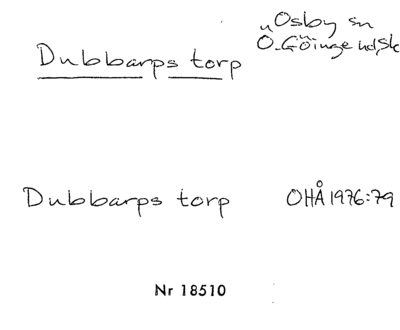 Osby sn
Ö. Göinge hd, Sk
Dubbarps torp
Dubbarps torp OHÅ 1976:79
Nr 18510